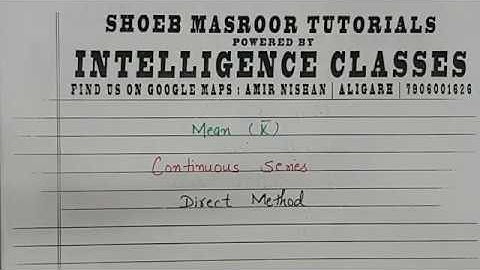 SHOEB MASROOR TUTORIALS
POWERED BY
INTELLIGENCE CLASSES
FIND US ON GOOGLE MAPS : AMIR NISHAN | ALIGARH | 7906001626
Mean (X̅)
Continuous Series
Direct Method